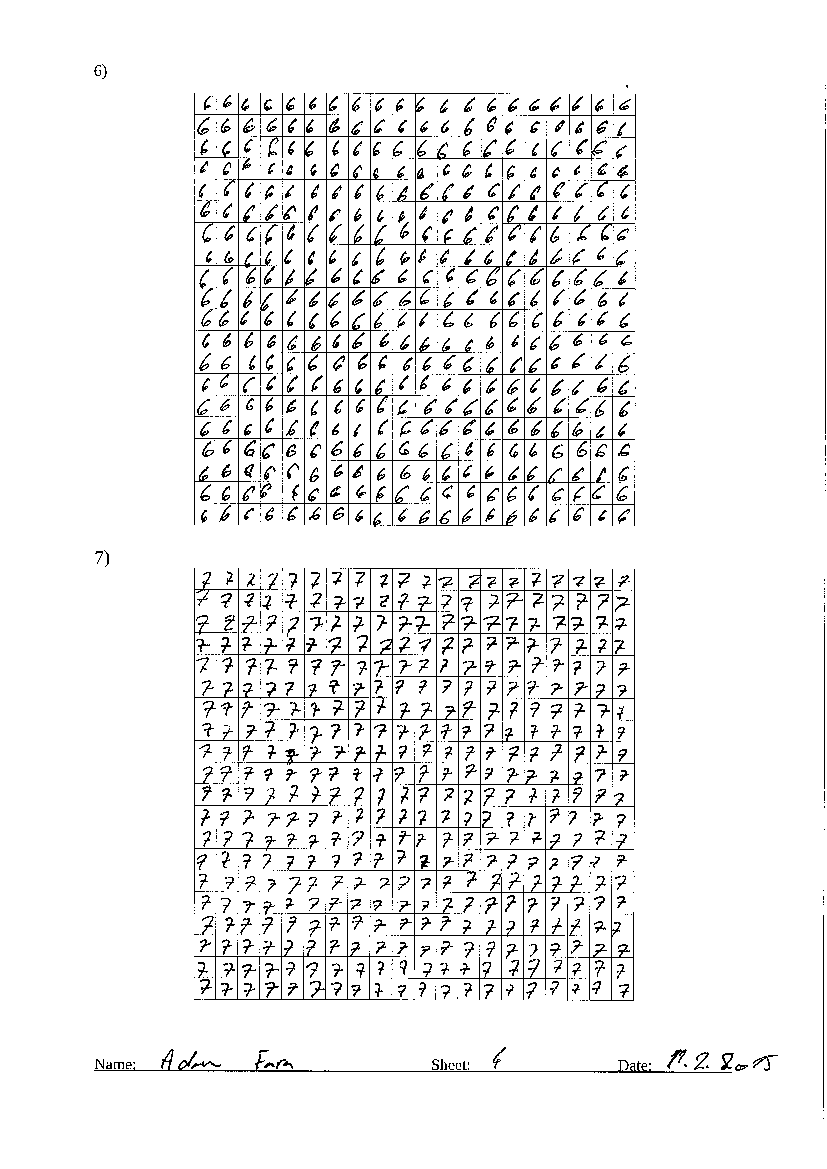 6)
6 6 6 6 6 6 6 6 6 6 6 6 6 6 6 6 6 6 6 6
6 6 6 6 6 6 6 6 6 6 6 6 6 6 6 6 6 6 6 6
6 6 6 6 6 6 6 6 6 6 6 6 6 6 6 6 6 6 6 6
6 6 6 6 6 6 6 6 6 6 6 6 6 6 6 6 6 6 6 6
6 6 6 6 6 6 6 6 6 6 6 6 6 6 6 6 6 6 6 6
6 6 6 6 6 6 6 6 6 6 6 6 6 6 6 6 6 6 6 6
6 6 6 6 6 6 6 6 6 6 6 6 6 6 6 6 6 6 6 6
6 6 6 6 6 6 6 6 6 6 6 6 6 6 6 6 6 6 6 6
6 6 6 6 6 6 6 6 6 6 6 6 6 6 6 6 6 6 6 6
6 6 6 6 6 6 6 6 6 6 6 6 6 6 6 6 6 6 6 6
6 6 6 6 6 6 6 6 6 6 6 6 6 6 6 6 6 6 6 6
6 6 6 6 6 6 6 6 6 6 6 6 6 6 6 6 6 6 6 6
6 6 6 6 6 6 6 6 6 6 6 6 6 6 6 6 6 6 6 6
6 6 6 6 6 6 6 6 6 6 6 6 6 6 6 6 6 6 6 6
6 6 6 6 6 6 6 6 6 6 6 6 6 6 6 6 6 6 6 6
6 6 6 6 6 6 6 6 6 6 6 6 6 6 6 6 6 6 6 6
6 6 6 6 6 6 6 6 6 6 6 6 6 6 6 6 6 6 6 6
6 6 6 6 6 6 6 6 6 6 6 6 6 6 6 6 6 6 6 6
6 6 6 6 6 6 6 6 6 6 6 6 6 6 6 6 6 6 6 6
6 6 6 6 6 6 6 6 6 6 6 6 6 6 6 6 6 6 6 6
7)
7 7 7 7 7 7 7 7 7 7 7 7 7 7 7 7 7 7 7 7
7 7 7 7 7 7 7 7 7 7 7 7 7 7 7 7 7 7 7 7
7 7 7 7 7 7 7 7 7 7 7 7 7 7 7 7 7 7 7 7
7 7 7 7 7 7 7 7 7 7 7 7 7 7 7 7 7 7 7 7
7 7 7 7 7 7 7 7 7 7 7 7 7 7 7 7 7 7 7 7
7 7 7 7 7 7 7 7 7 7 7 7 7 7 7 7 7 7 7 7
7 7 7 7 7 7 7 7 7 7 7 7 7 7 7 7 7 7 7 7
7 7 7 7 7 7 7 7 7 7 7 7 7 7 7 7 7 7 7 7
7 7 7 7 7 7 7 7 7 7 7 7 7 7 7 7 7 7 7 7
7 7 7 7 7 7 7 7 7 7 7 7 7 7 7 7 7 7 7 7
7 7 7 7 7 7 7 7 7 7 7 7 7 7 7 7 7 7 7 7
7 7 7 7 7 7 7 7 7 7 7 7 7 7 7 7 7 7 7 7
7 7 7 7 7 7 7 7 7 7 7 7 7 7 7 7 7 7 7 7
7 7 7 7 7 7 7 7 7 7 7 7 7 7 7 7 7 7 7 7
7 7 7 7 7 7 7 7 7 7 7 7 7 7 7 7 7 7 7 7
7 7 7 7 7 7 7 7 7 7 7 7 7 7 7 7 7 7 7 7
7 7 7 7 7 7 7 7 7 7 7 7 7 7 7 7 7 7 7 7
7 7 7 7 7 7 7 7 7 7 7 7 7 7 7 7 7 7 7 7
7 7 7 7 7 7 7 7 7 7 7 7 7 7 7 7 7 7 7 7
7 7 7 7 7 7 7 7 7 7 7 7 7 7 7 7 7 7 7 7
Name: Adam Sheet: Date: